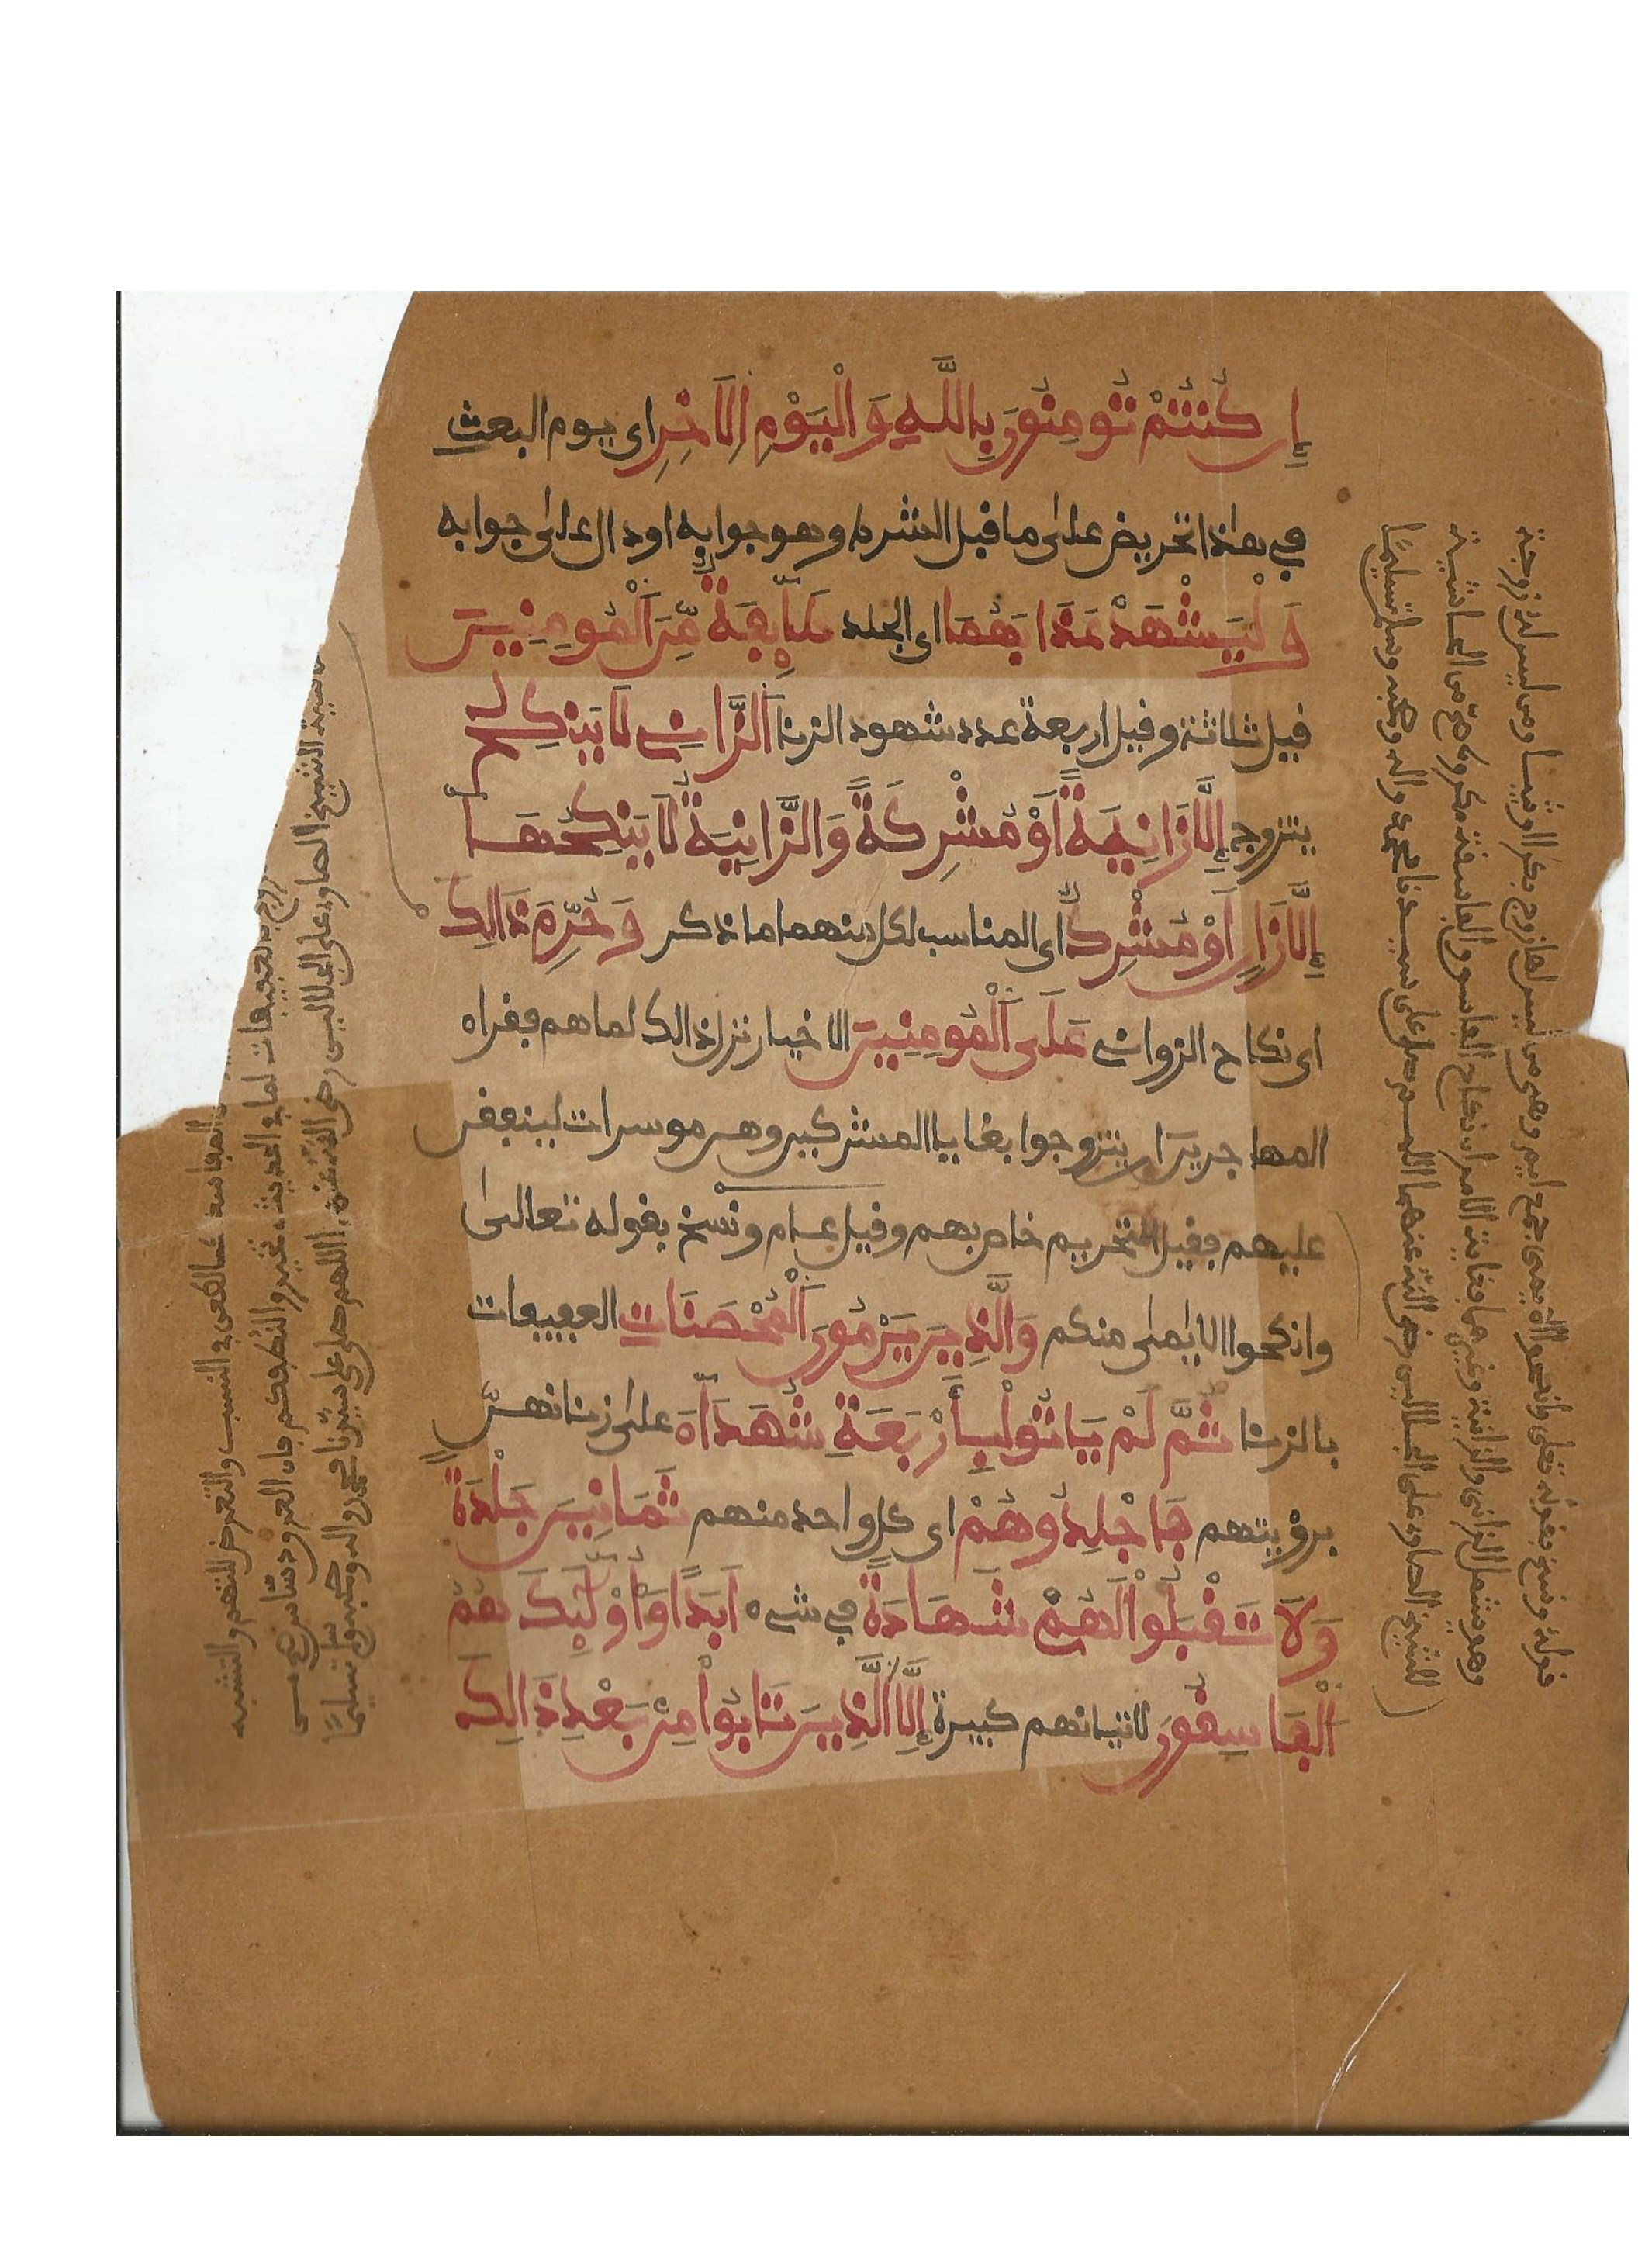 إِن كُنتُمْ تُومِنُونَ بِاللَّهِ وَالْيَوْمِ الَاخِرِ اى يوم البعث
في هذا تحريض على ما قبل الشرط وهو جوابه او دال على جوابه
وَلْيَشْهَدْ عَذَابَهُمَا اى الجلد طَآئِفَةٌ مِّنَ الْمُومِنِينَ
قيل ثلاثة وقيل اربعة عدد شهود الزنا الزَّانِي لَا يَنكِحُ
يتزوج إِلَّا زَانِيَةً اَوْ مُشْرِكَةً وَالزَّانِيَةُ لَا يَنكِحُهَا
إِلَّا زَانٍ اَوْ مُشْرِكٌ اى المناسب لكل منهما ما ذكر وَحُرِّمَ ذَالِكَ
اى نكاح الزواني عَلَى الْمُومِنِينَ الاخيار نزل ذالك لما هم فقراء
المهاجرين ان يتزوجوا بغايا المشركين وهن موسرات لينفقن
عليهم فقيل التحريم خاص بهم وقيل عام ونسخ بقوله تعالى
وانكحوا الايامى منكم وَالَّذِينَ يَرْمُونَ الْمُحْصَنَاتِ العفيفات
بالزنا ثُمَّ لَمْ يَاتُوا بِأَرْبَعَةِ شُهَدَآءَ على زناهن
برؤيتهم فَاجْلِدُوهُمْ اى كل واحد منهم ثَمَانِينَ جَلْدَةً
وَلَا تَقْبَلُوا لَهُمْ شَهَادَةً في شيء اَبَدًا وَأُوْلَٰئِكَ هُمُ
الْفَاسِقُونَ لاتيانهم كبيرة إِلَّا الَّذِينَ تَابُوا مِنْ بَعْدِ ذَالِكَ
قوله ونسخ بقوله تعلى وانكحوا الايمى جمع ايم وهي من ليس لها زوج بكرا او ثيبا ومن ليس له زوجة
وهو يشمل الزاني والزانية وغيرهما فغاية الامر ان نكاح الفاسق والفاسقة مكروه من الحاشية
للشيخ الصاوى على الجلالين رضى الله عنهما اللهم صل على سيدنا محمد واله وصحبه وسلم تسليما
المفاسد كالطعن في النسب والتعرض للتهم والتشبه
الشيخ الصاوى على الجلالين رضى الله عنه اللهم صل على سيدنا محمد واله وصحبه وسلم تسليما